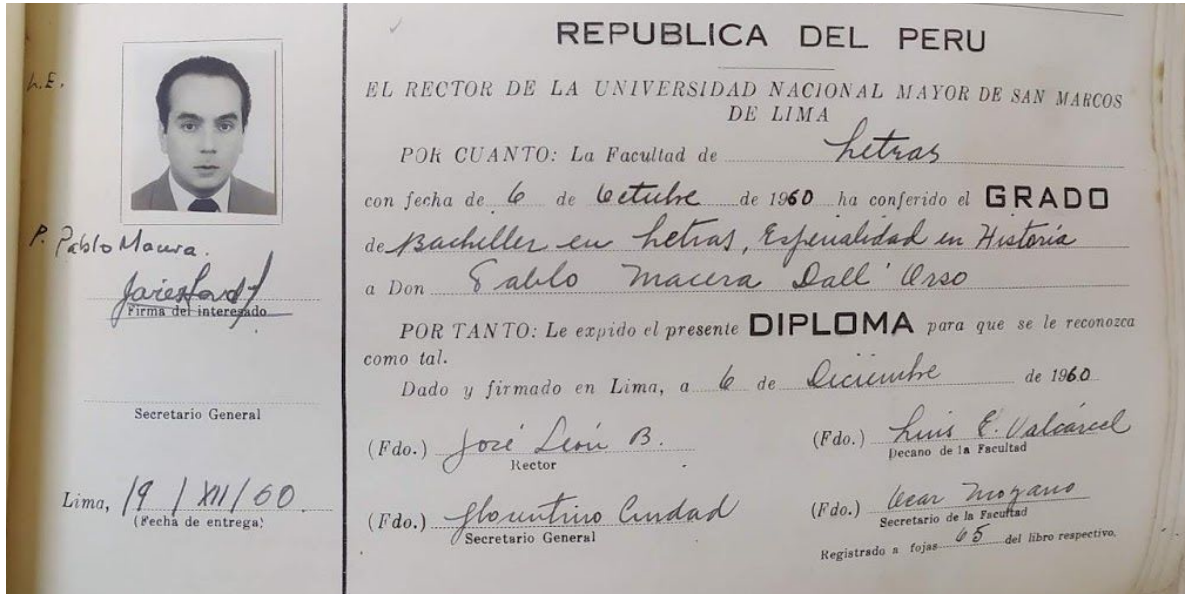 L.E.
P. Pablo Macera.
Firma del interesado
Secretario General
Lima, 19 / XII / 60
(Fecha de entrega)
REPUBLICA DEL PERU
EL RECTOR DE LA UNIVERSIDAD NACIONAL MAYOR DE SAN MARCOS
DE LIMA
POR CUANTO: La Facultad de Letras
con fecha de 6 de Octubre de 1960 ha conferido el GRADO
de Bachiller en Letras, Especialidad en Historia
a Don Pablo Macera Dall' Orso
POR TANTO: Le expido el presente DIPLOMA para que se le reconozca
como tal.
Dado y firmado en Lima, a 6 de Diciembre de 1960
(Fdo.) José León B.
Rector
(Fdo.) Luis E. Valcárcel
Decano de la Facultad
(Fdo.) Florentino Ciudad
Secretario General
(Fdo.) Mozano
Secretario de la Facultad
Registrado a fojas 65 del libro respectivo.